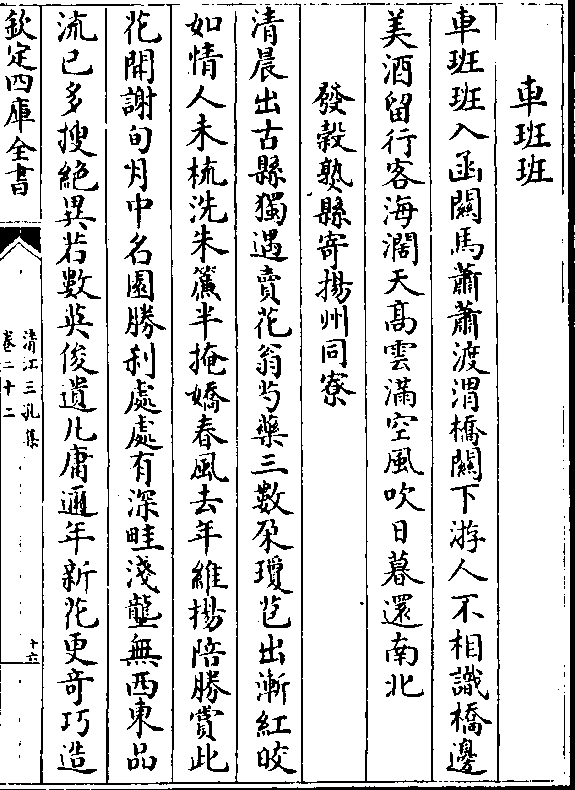 車班班
車班班入函闗馬蕭蕭渡渭橋闗下游人不相識橋邊
美酒留行客海濶天髙雲滿空風吹日暮還南北
發穀熟縣寄揚州同寮
清晨出古縣獨遇賣花翁芍藥三數朶瓊苞出漸紅皎
如情人未梳洗朱簾半掩嬌春風去年維揚陪勝賞此
花開謝旬月中名園勝刹處處有深畦淺壠無西東品
流已多搜絶異若數英俊遺凡庸邇年新花更竒巧造
欽定四庫全書
清江三孔集
卷二十二
十六